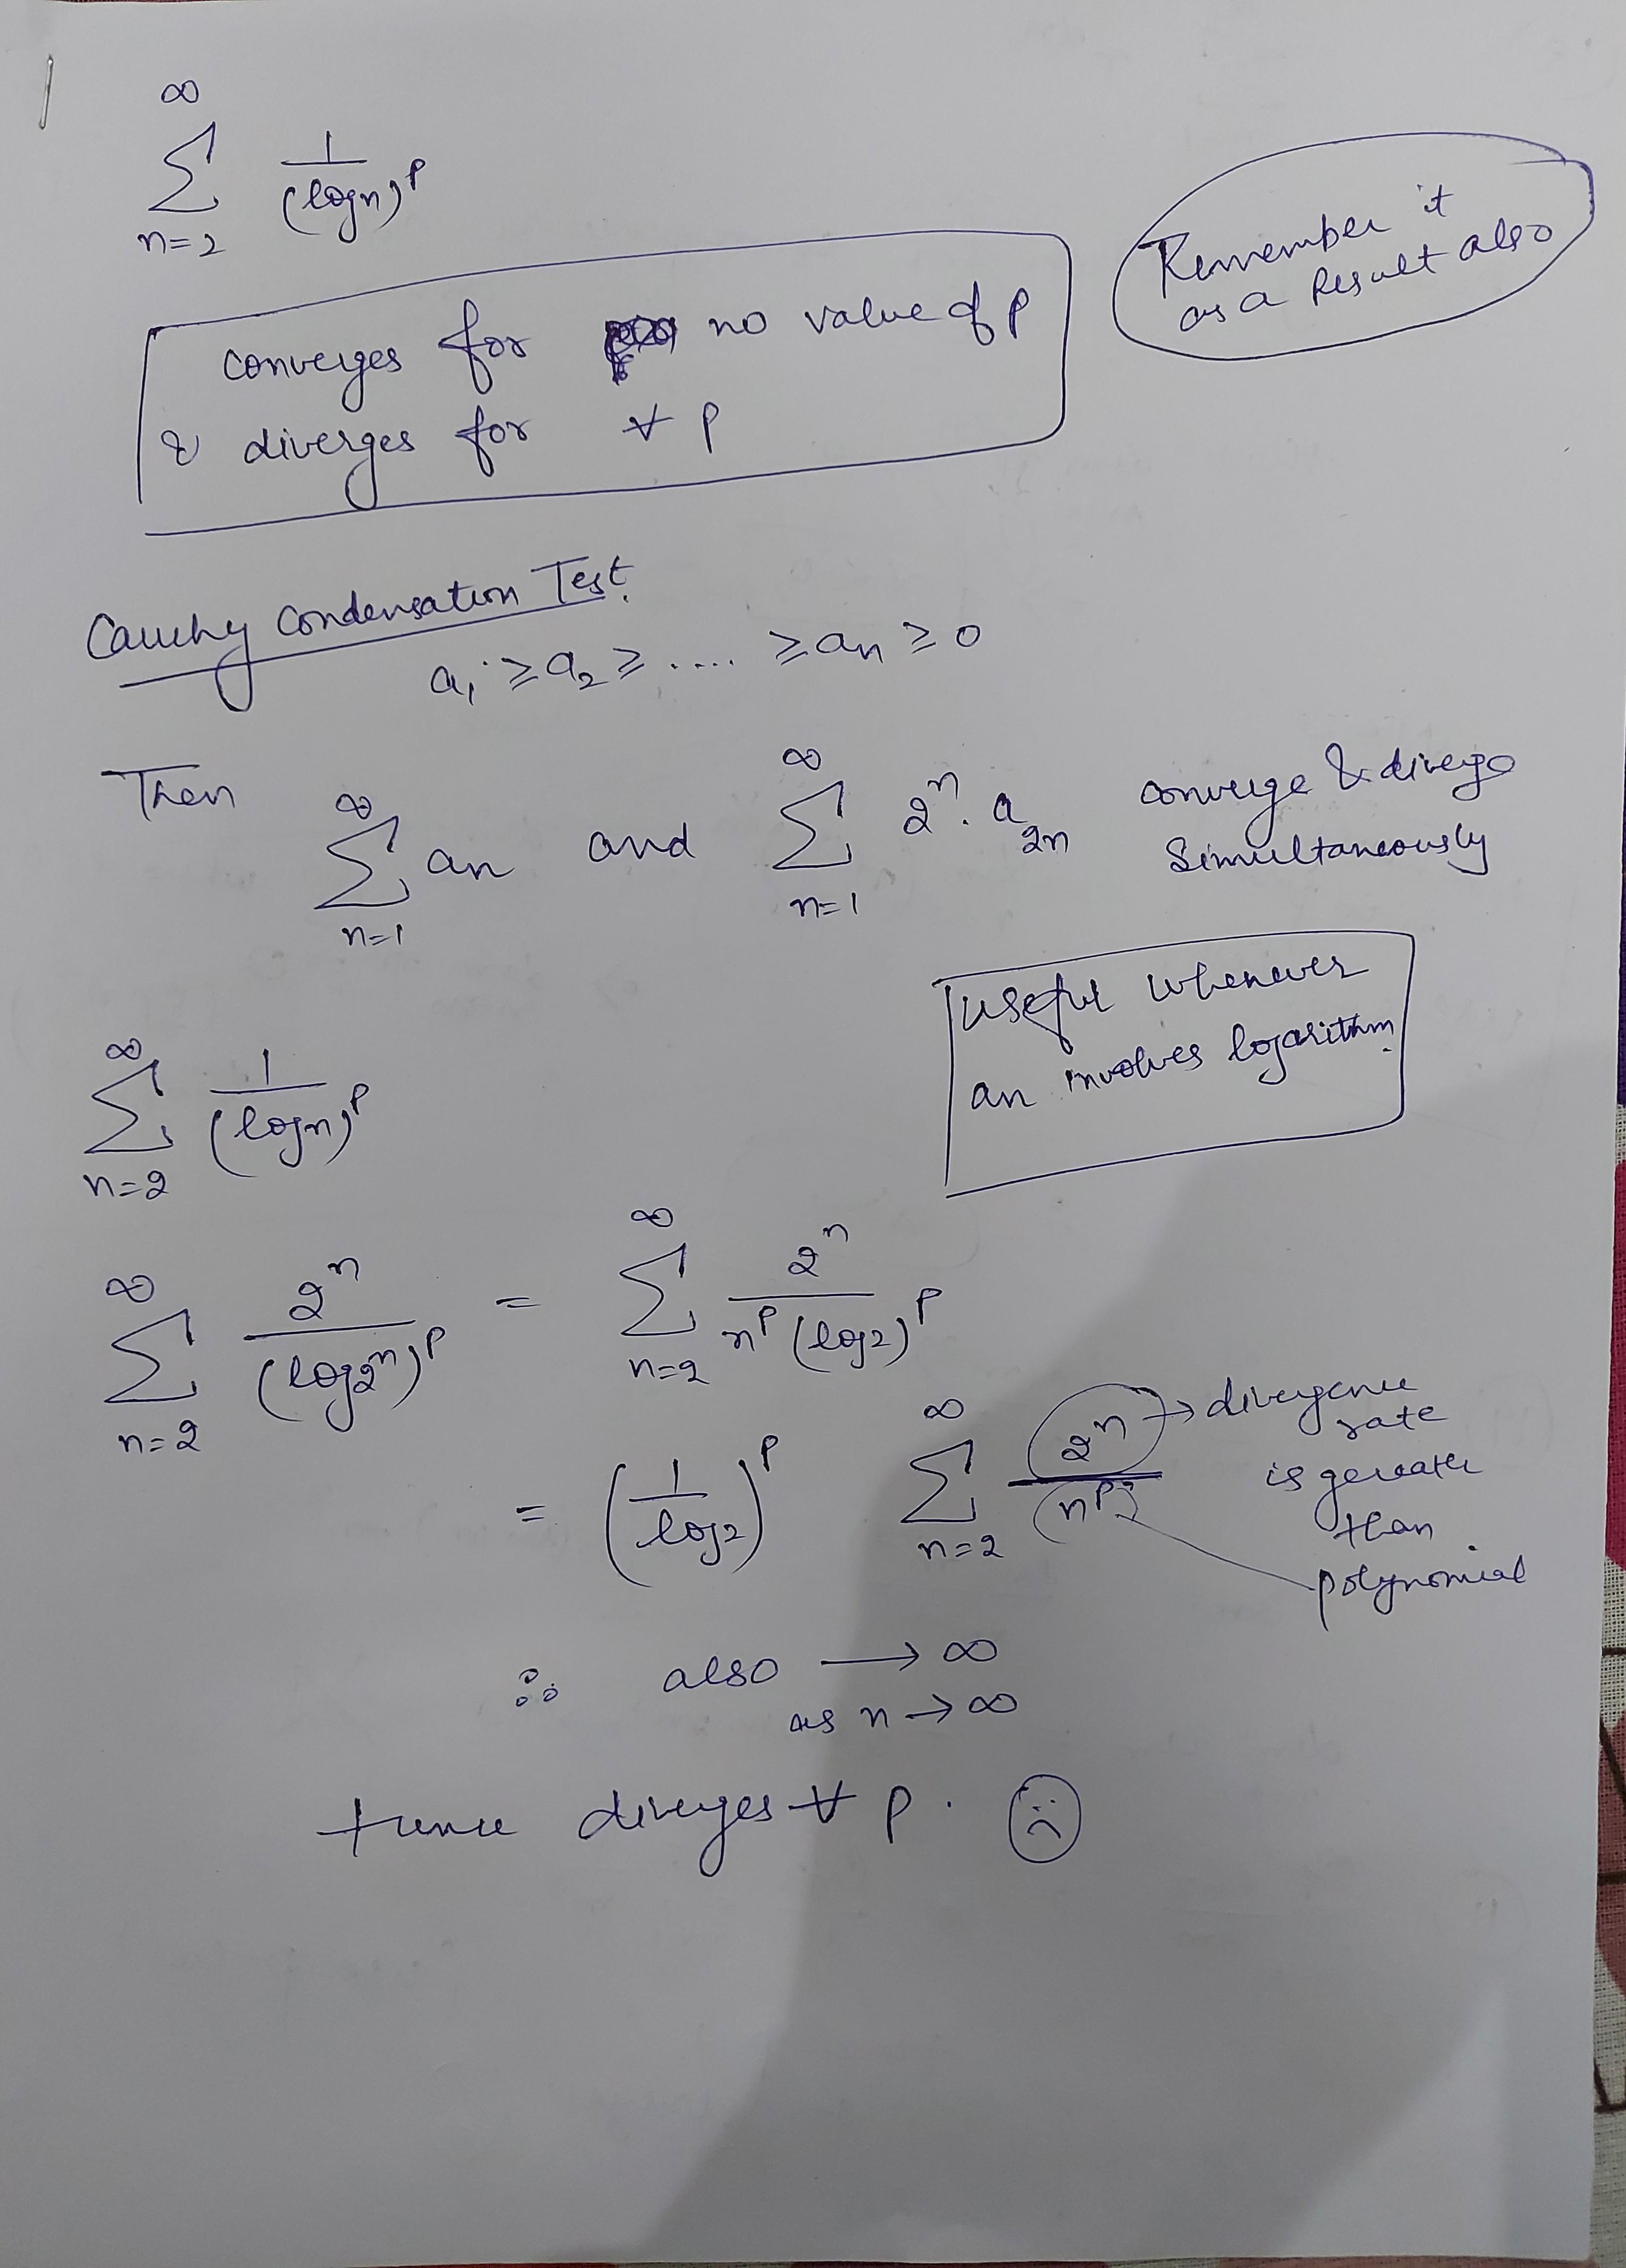 ∞
∑ 1/(logn)^p
n=2
Remember it
as a Result also
converges for no value of p
& diverges for ∀ p
Cauchy Condensation Test.
a₁ ≥ a₂ ≥ .... ≥ an ≥ 0
Then ∑_{n=1}^{∞} an and ∑_{n=1}^{∞} 2^n . a_{2n} converge & diverge
Simultaneously
useful whenever
an involves logarithm.
∑_{n=2}^{∞} 1/(logn)^p
∑_{n=2}^{∞} 2^n/(log2^n)^p = ∑_{n=2}^{∞} 2^n/(n^p (log2)^p)
= (1/log2)^p ∑_{n=2}^{∞} 2^n/(n^p) → divergence
rate
is greater
than
polynomial
∴ also → ∞
as n → ∞
Hence diverges ∀ p.